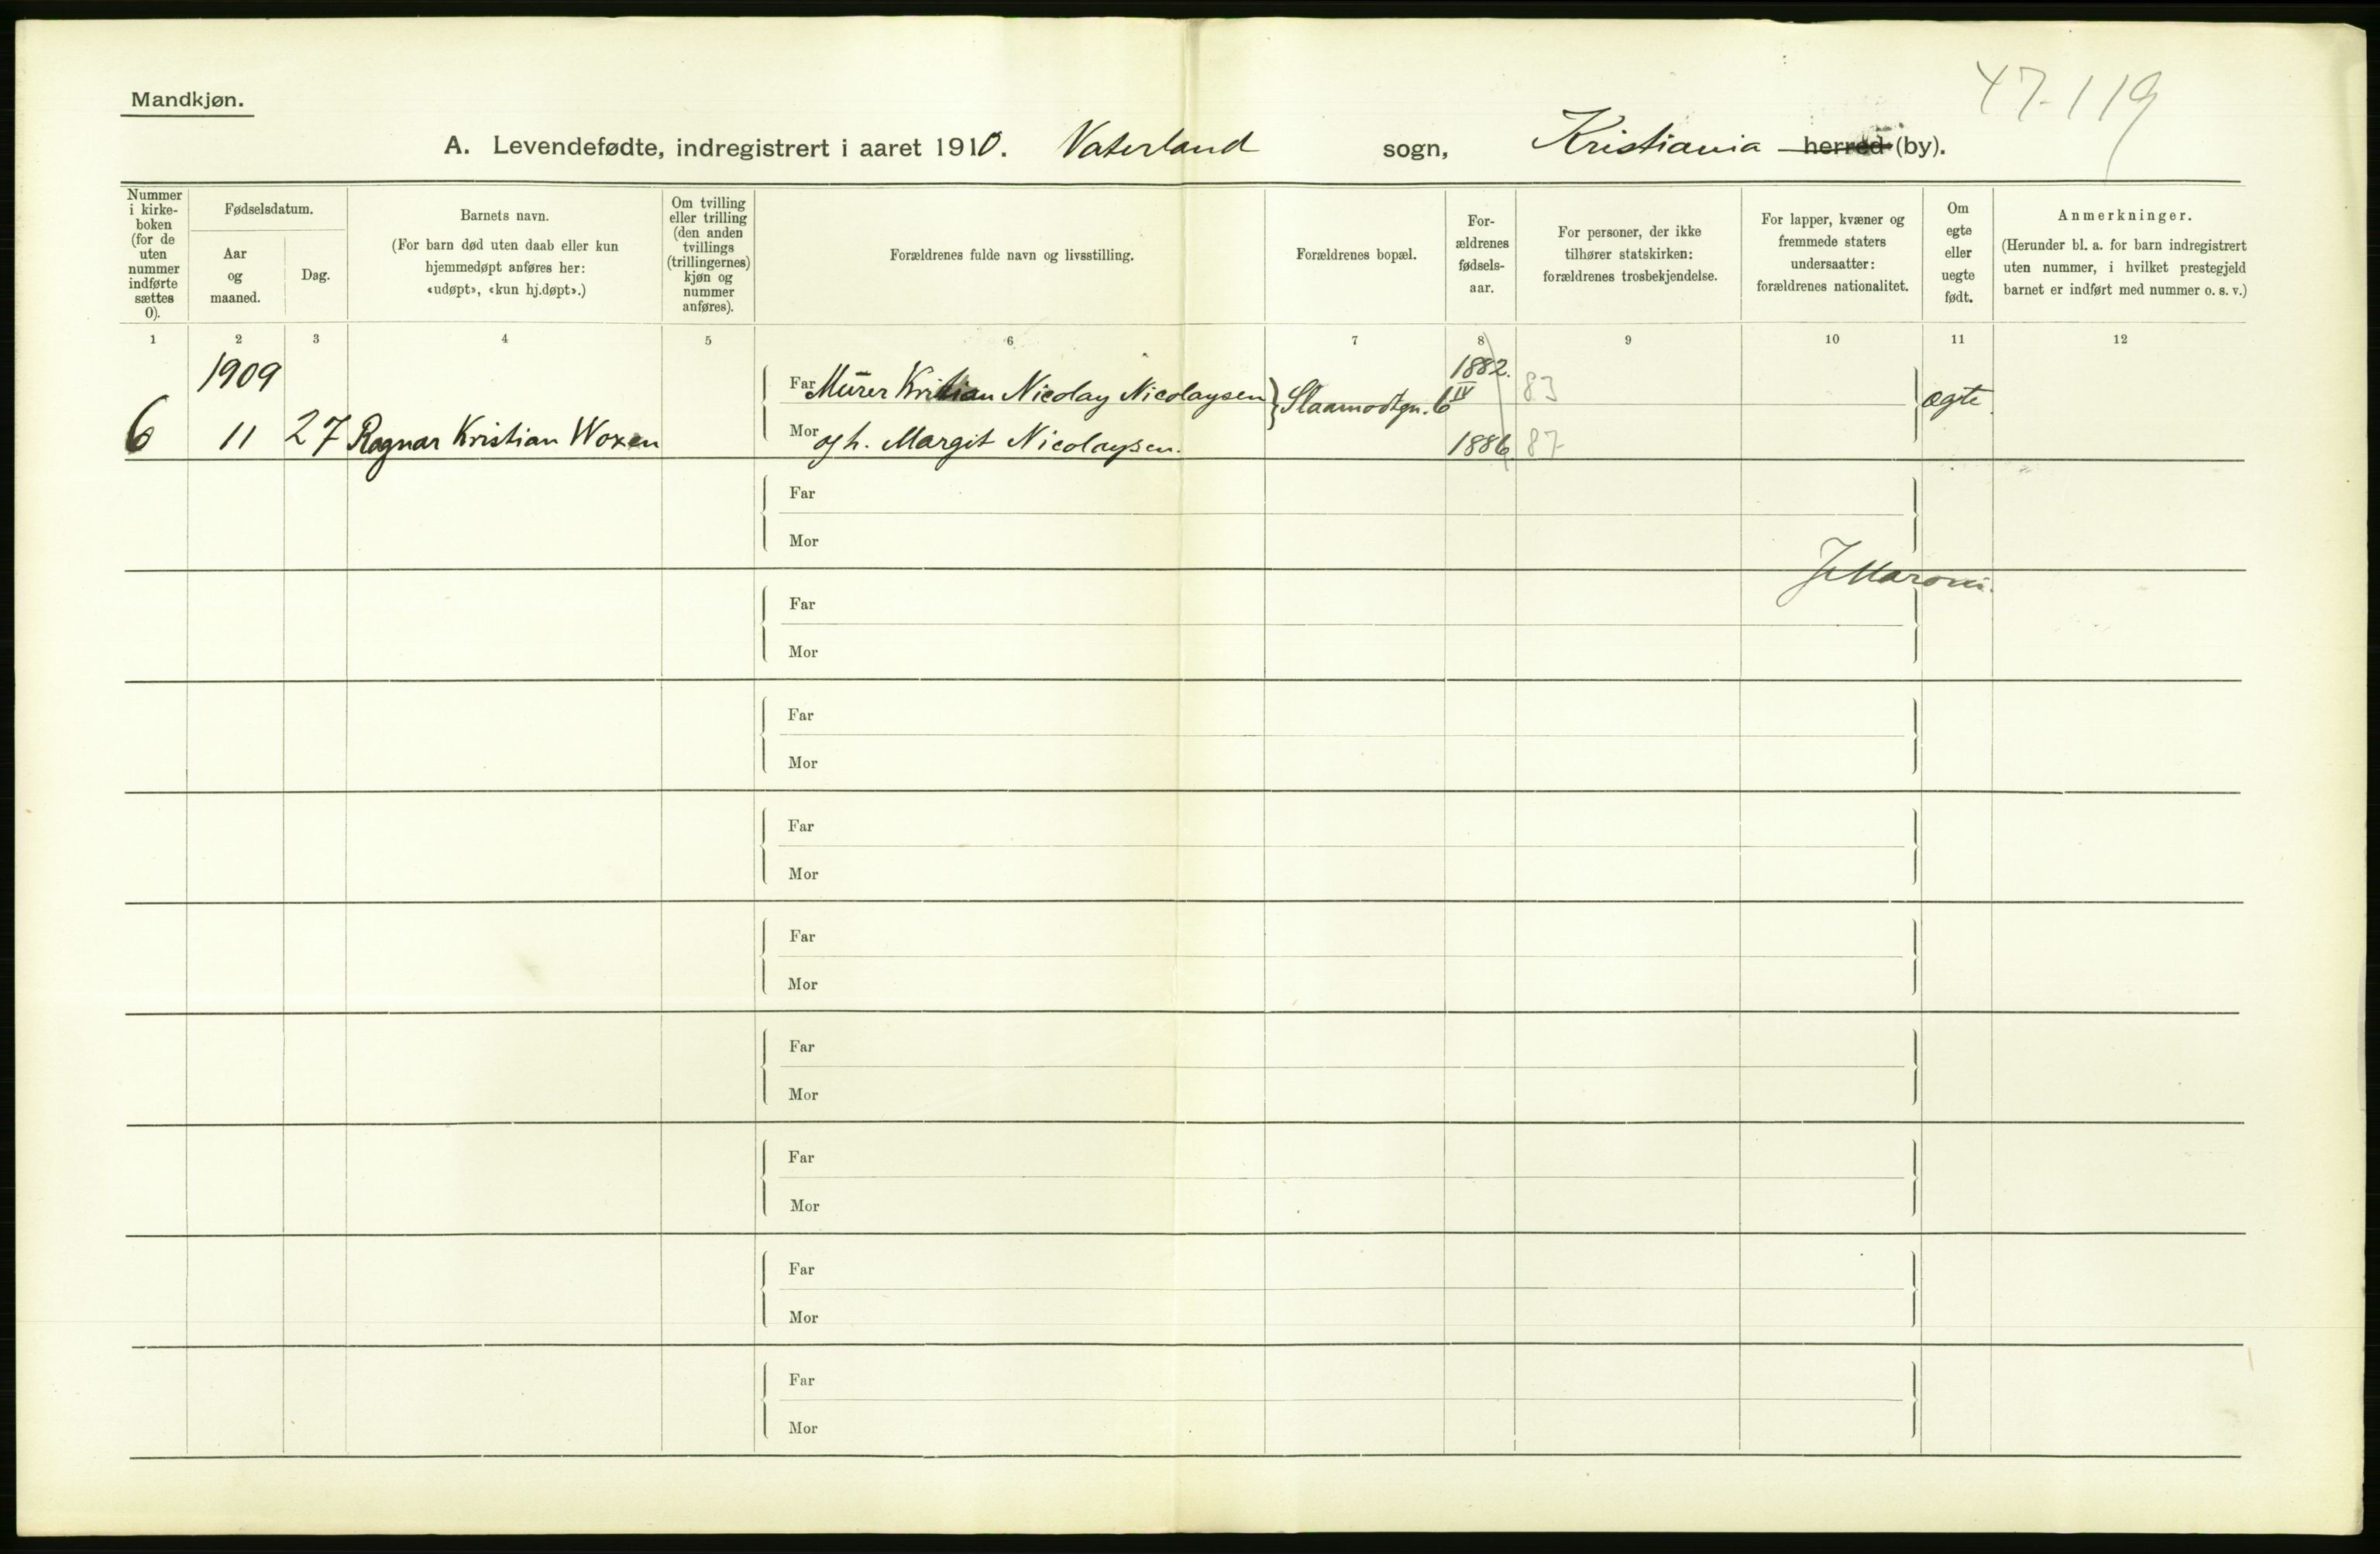 47-119
Mandkjøn.
A. Levendefødte, indregistrert i aaret 1910. Vaterland sogn, Kristiania herred (by).
Nummer i kirke- boken (for de uten nummer indførte sættes 0).
Fødselsdatum.
Aar og maaned.
Dag.
Barnets navn.
(For barn død uten daab eller kun hjemmedøpt anføres her: «udøpt», «kun hj.døpt».)
Om tvilling eller trilling (den anden tvillings (trillingernes) kjøn og nummer anføres).
Forældrenes fulde navn og livsstilling.
Forældrenes bopæl.
For- ældrenes fødsels- aar.
For personer, der ikke tilhører statskirken: forældrenes trosbekjendelse.
For lapper, kvæner og fremmede staters undersaatter: forældrenes nationalitet.
Om egte eller uegte født.
Anmerkninger.
(Herunder bl. a. for barn indregistrert uten nummer, i hvilket prestegjeld barnet er indført med nummer o. s. v.)
1 2 3 4 5 6 7 8 9 10 11 12
1909
Far Murer Kristian Nicolay Nicolaysen } Slaamodtgn. 6 IV 1882. 83 ægte.
6 11 27 Ragnar Kristian Woxen
Mor og h. Margit Nicolaysen. 1886. 87
Far
Mor
J Maroni.
Far
Mor
Far
Mor
Far
Mor
Far
Mor
Far
Mor
Far
Mor
Far
Mor
Far
Mor